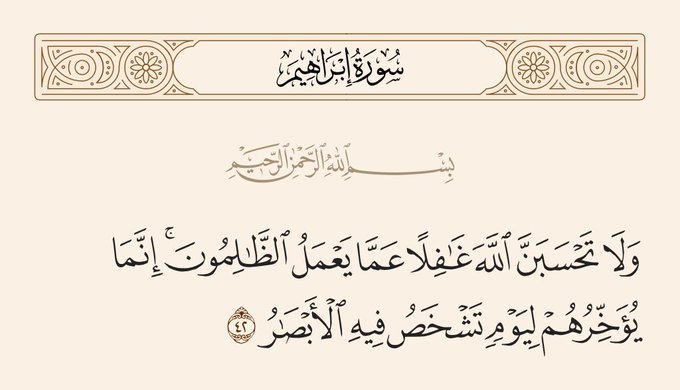 سُورَةُ إِبْرَاهِيمَ
بِسْمِ ٱللَّهِ ٱلرَّحْمَٰنِ ٱلرَّحِيمِ
وَلَا تَحْسَبَنَّ ٱللَّهَ غَٰفِلًا عَمَّا يَعْمَلُ ٱلظَّٰلِمُونَ ۚ إِنَّمَا
يُؤَخِّرُهُمْ لِيَوْمٍ تَشْخَصُ فِيهِ ٱلْأَبْصَٰرُ ٤٢